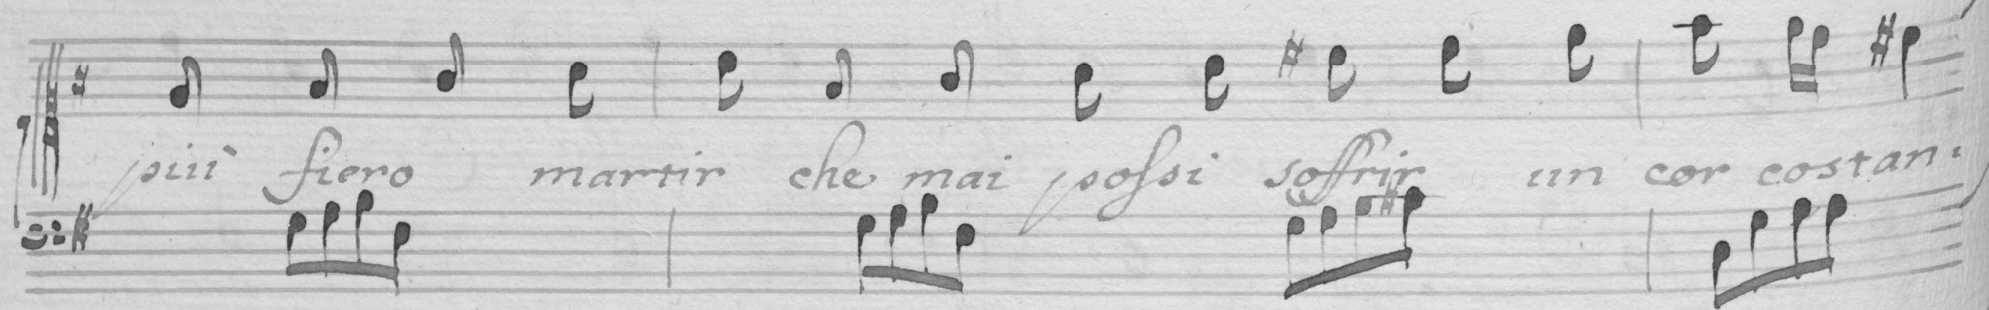 più fiero martir che mai poſsi soffrir un cor costan: